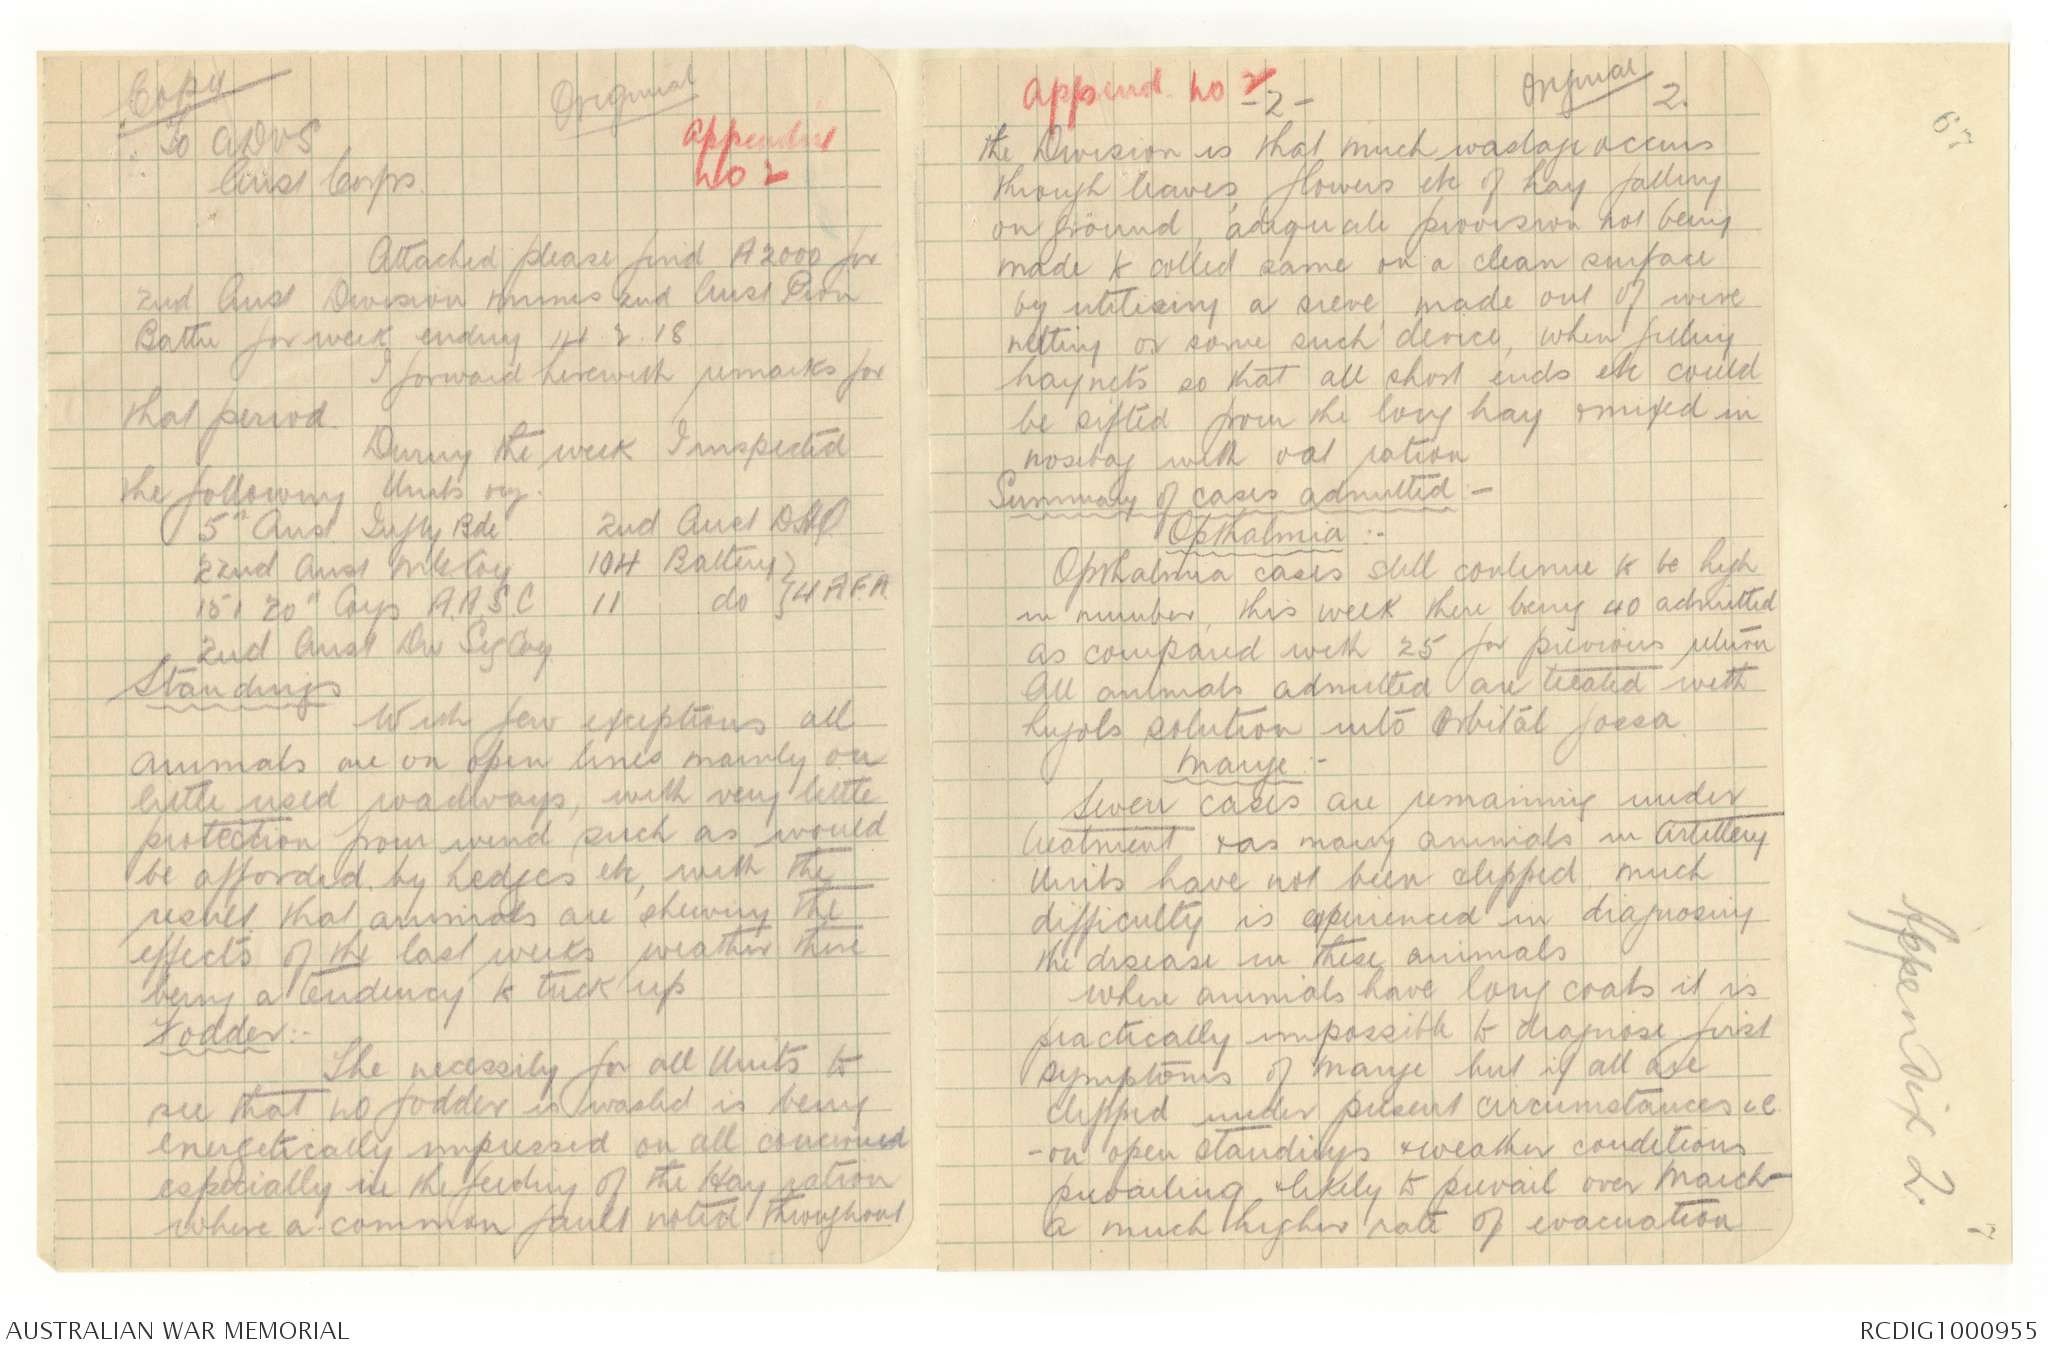 Copy
Original
To ADVS
Aust Corps.
Appendix
No 2
Attached please find A2000 for
2nd Aust Division minus 2nd Aust Pion
Battn for week ending 14.2.18
I forward herewith remarks for
that period.
During the week I inspected
the following Units viz.
5th Aust Inftry Bde 2nd Aust DAC
22nd Aust M.G. Coy 104 Battery
15 & 20th Coys A.A.S.C 11 do } 4 A.F.A.
2nd Aust Div Sig Coy
Standings
With few exceptions all
animals are on open lines mainly on
little used roadways, with very little
protection from wind such as would
be afforded by hedges etc, with the
result that animals are shewing the
effects of the last weeks weather there
being a tendency to tuck up
Fodder:-
The necessity for all Units to
see that no fodder is wasted is being
energetically impressed on all concerned
especially in the feeding of the Hay ration
where a common fault noted throughout
Append. No 2
-2-
Original
2.
the Division is that much wastage occurs
through leaves, flowers etc of hay falling
on ground, adequate provision not being
made to collect same on a clean surface
by utilizing a sieve made out of wire
netting or some such device, when filling
haynets so that all short ends etc could
be sifted from the long hay & mixed in
nosebag with oat ration
Summary of cases admitted:-
Opthalmia:-
Opthalmia cases still continue to be high
in number, this week there being 40 admitted
as compared with 25 for previous return
All animals admitted are treated with
lugols solution into Orbital fossa.
Mange:-
Seven cases are remaining under
treatment & as many animals in Artillery
Units have not been clipped much
difficulty is experienced in diagnosing
the disease in these animals
where animals have long coats it is
practically impossible to diagnose first
symptoms of Mange but if all are
clipped under present circumstances i.e.
-on open standings & weather conditions
prevailing & likely to prevail over March-
a much higher rate of evacuation
Appendix 2.
7
AUSTRALIAN WAR MEMORIAL
RCDIG1000955